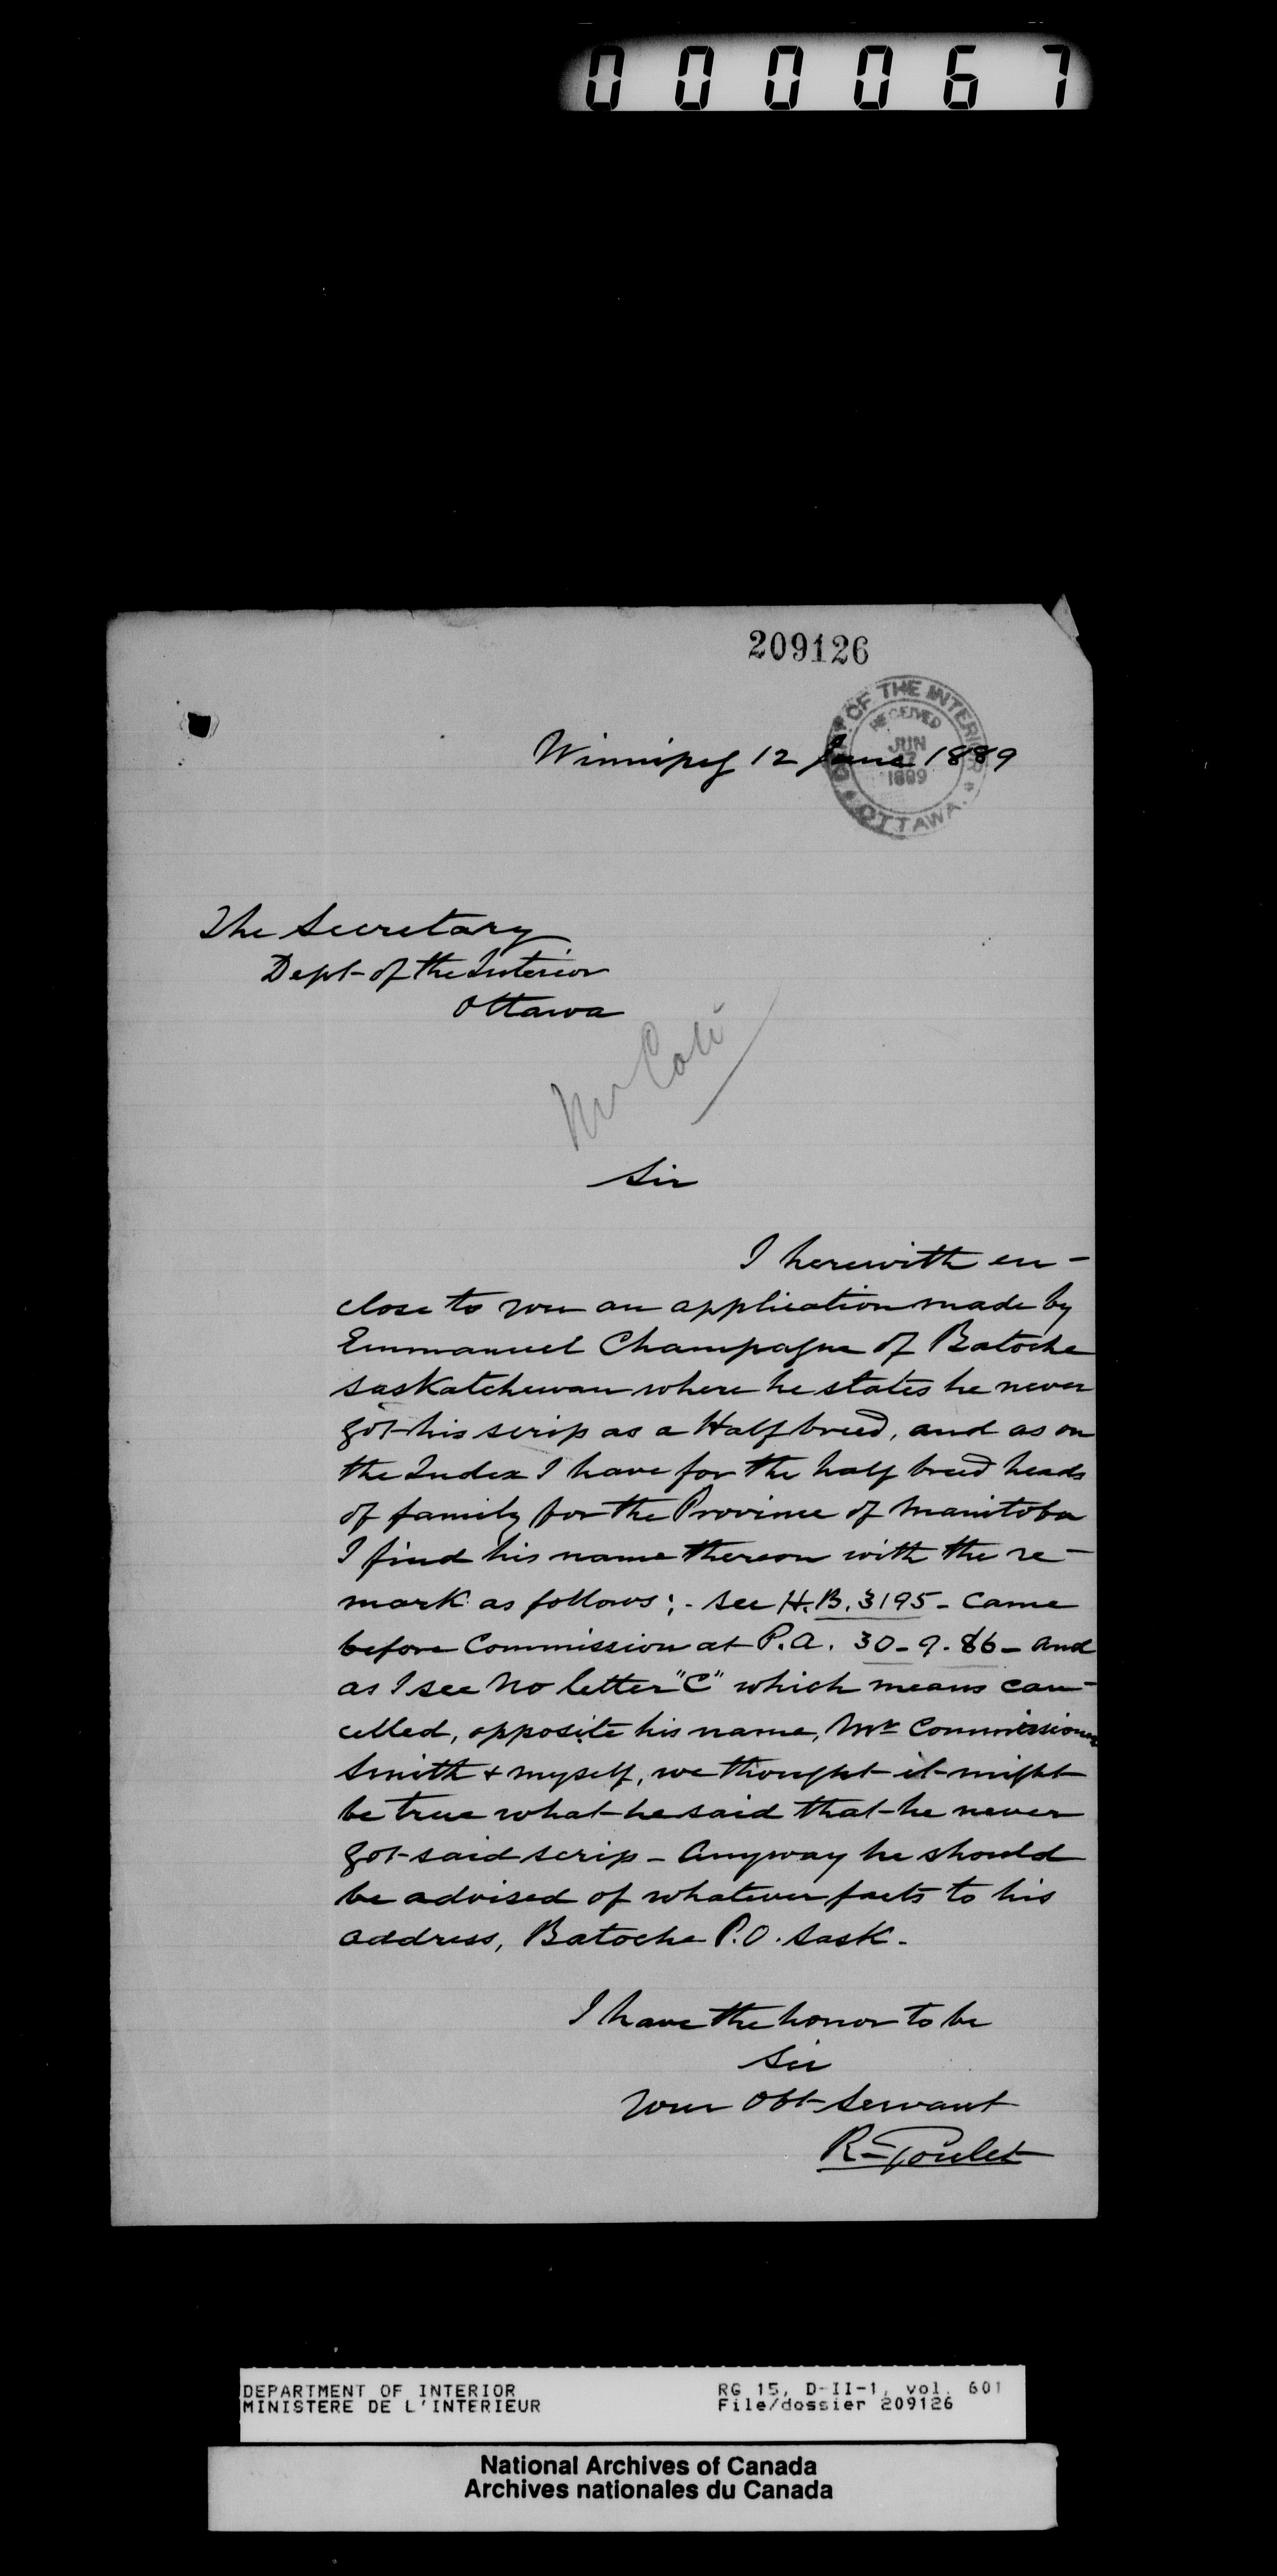 000067
209126
DEPT OF THE INTERIOR
RECEIVED
JUN
17
1889
OTTAWA.
Winnipeg 12 June 1889
The Secretary
Dept of the Interior
Ottawa
Sir
I herewith en-
close to you an application made by
Emmanuel Champagne of Batoche
Saskatchewan where he states he never
got his scrip as a Half breed, and as on
the Index I have for the half breed heads
of family for the Province of Manitoba
I find his name thereon with the re-
mark as follows:- see H.B. 3195 - Came
before Commission at P.A. 30-9-86 - and
as I see no letter "C" which means can-
celled, opposite his name, Mr Commissioner
Smith & myself, we thought it might
be true what he said that he never
got said scrip - Anyway he should
be advised of whatever facts to his
address, Batoche P.O. Sask.
I have the honor to be
Sir
Your Obt Servant
R. Goulet
DEPARTMENT OF INTERIOR
MINISTERE DE L'INTERIEUR
RG 15, D-II-1, vol. 601
File/dossier 209126
National Archives of Canada
Archives nationales du Canada